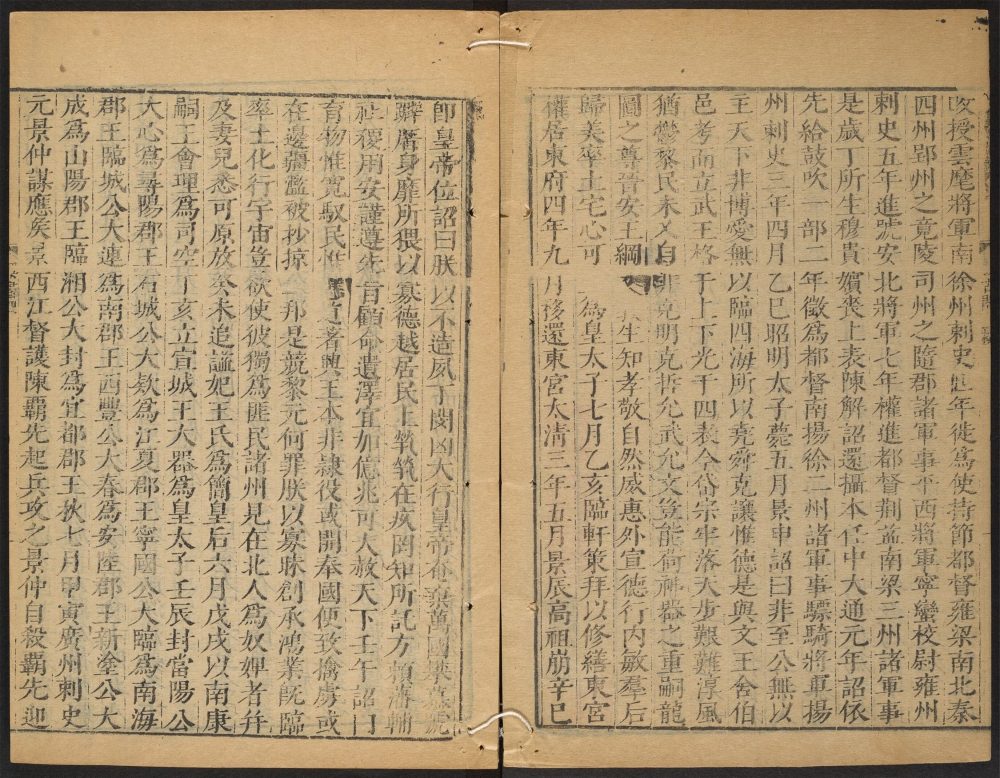 改授雲麾將軍南徐州刺史五年徙爲使持節都督雍梁南北秦
四州郢州之竟陵司州之隨郡諸軍事平西將軍寧蠻校尉雍州
刺史五年進號安北將軍七年權進都督荊益南梁三州諸軍事
是歲丁所生穆貴嬪喪上表陳解詔還攝本任中大通元年詔依
先給鼓吹一部二年徵爲都督南揚徐二州諸軍事驃騎將軍揚
州刺史三年四月乙巳昭明太子薨五月景申詔曰非至公無以
主天下非博愛無以臨四海所以堯舜克讓惟德是與文王舍伯
邑考而立武王格于上下光于四表今岱宗牢落天步艱難淳風
猶鬱黎民未乂自非克明克哲允武允文豈能荷神器之重嗣龍
圖之尊晉安王綱生知孝敬自然威惠外宣德行內敏羣后
歸美率土宅心可爲皇太子七月乙亥臨軒策拜以修繕東宮
權居東府四年九月移還東宮太清三年五月景辰高祖崩辛巳
即皇帝位詔曰朕以不造夙丁閔凶大行皇帝奄棄萬國攀慕號
躃厝身靡所猥以寡德越居民上煢煢在疚罔知所託方賴藩輔
社稷用安謹遵先旨顧命遺澤宜加億兆可大赦天下壬午詔曰
育物惟寬馭民惟著興王本非隷役或開奉國便致擒虜或
在邊疆濫被抄掠邦是競黎元何罪朕以寡昧創承鴻業旣臨
率土化行宇宙豈欲使彼獨爲匪民諸州見在北人爲奴婢者幷
及妻兒悉可原放癸未追諡妃王氏爲簡皇后六月戊戌以南康
嗣王會理爲司空丁亥立宣城王大器爲皇太子壬辰封當陽公
大心爲尋陽郡王石城公大欵爲江夏郡王寧國公大臨爲南海
郡王臨城公大連爲南郡王西豐公大春爲安陸郡王新塗公大
成爲山陽郡王臨湘公大封爲宜都郡王秋七月甲寅廣州刺史
元景仲謀應侯景西江督護陳霸先起兵攻之景仲自殺霸先迎